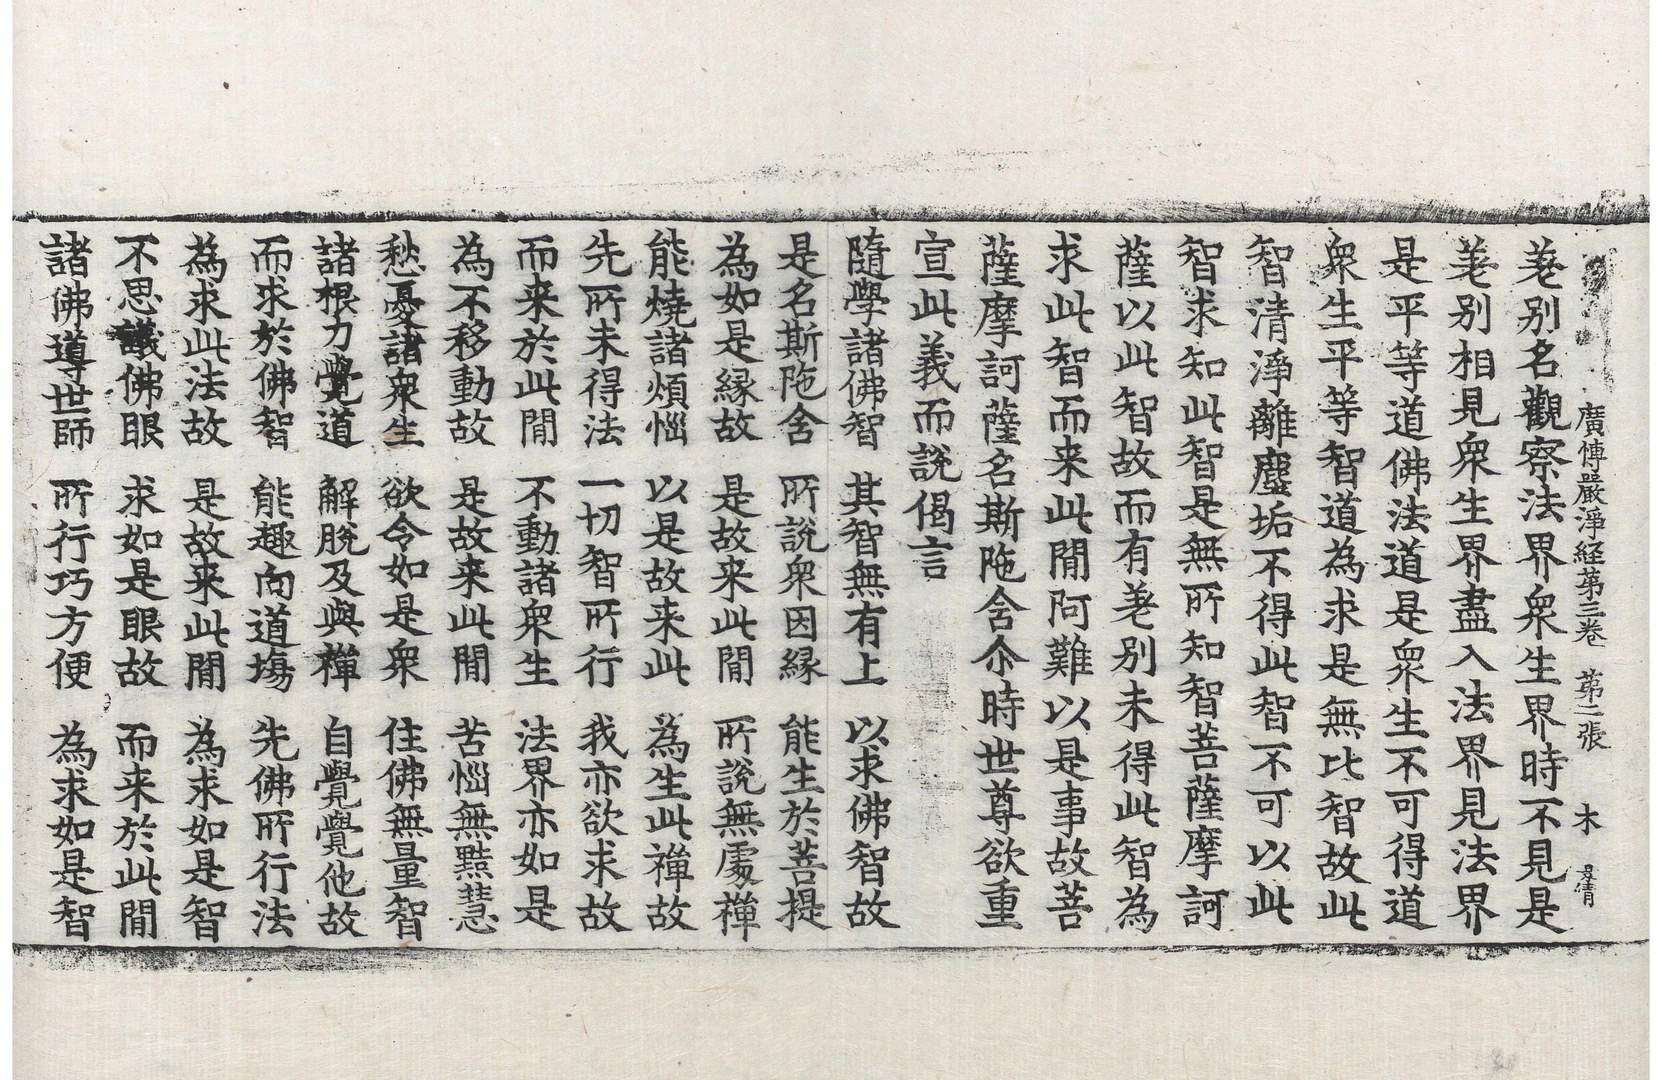 廣博嚴淨経第三卷　第二張　木
差別名觀察法界衆生界時不見是
差別相見衆生界盡入法界見法界
是平等道佛法道是衆生不可得道
衆生平等智道為求是無比智故此
智清淨離塵垢不得此智不可以此
智求知此智是無所知智菩薩摩訶
薩以此智故而有差別未得此智為
求此智而来此閒阿難以是事故菩
薩摩訶薩名斯陁含尒時世尊欲重
宣此義而說偈言
隨學諸佛智　其智無有上　以求佛智故
是名斯陁含　所說衆因緣　能生於菩提
為如是緣故　是故来此閒　所說無處禪
能燒諸煩惱　以是故来此　為生此禪故
先所未得法　一切智所行　我亦欲求故
而来於此閒　不動諸衆生　法界亦如是
為不移動故　是故来此閒　苦惱無黠慧
愁憂諸衆生　欲令如是衆　住佛無量智
諸根力覺道　解脫及與禪　自覺覺他故
而求於佛智　能趣向道場　先佛所行法
為求此法故　是故来此閒　為求如是智
不思議佛眼　求如是眼故　而来於此閒
諸佛導世師　所行巧方便　為求如是智